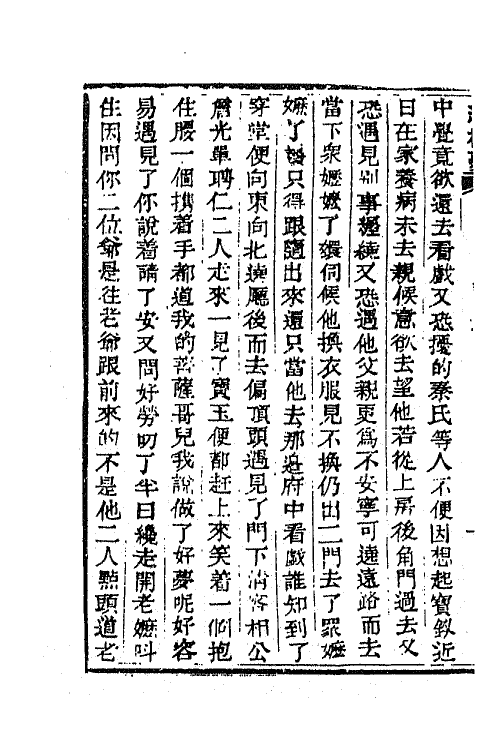 中覺竟欲還去看戲又恐擾的秦氏等人不便因想起寶釵近
日在家養病未去親候意欲去望他若從上房後角門過去又
恐遇見別事纏繞又恐遇他父親更為不妥寧可遶遠路而去
當下衆嬤嬤丫鬟伺候他換衣服見不換仍出二門去了衆嬤
嬤丫鬟只得跟隨出來還只當他去那邊府中看戲誰知到了
穿堂便向東向北遶廳後而去偏頂頭遇見了門下清客相公
詹光單聘仁二人走來一見了寶玉便都赶上來笑着一個抱
住腰一個携着手都道我的菩薩哥兒我說做了好夢呢好容
易遇見了你說着請了安又問好勞叨了半日纔走開老嬤叫
住因問你二位爺是往老爺跟前來的不是他二人點頭道老